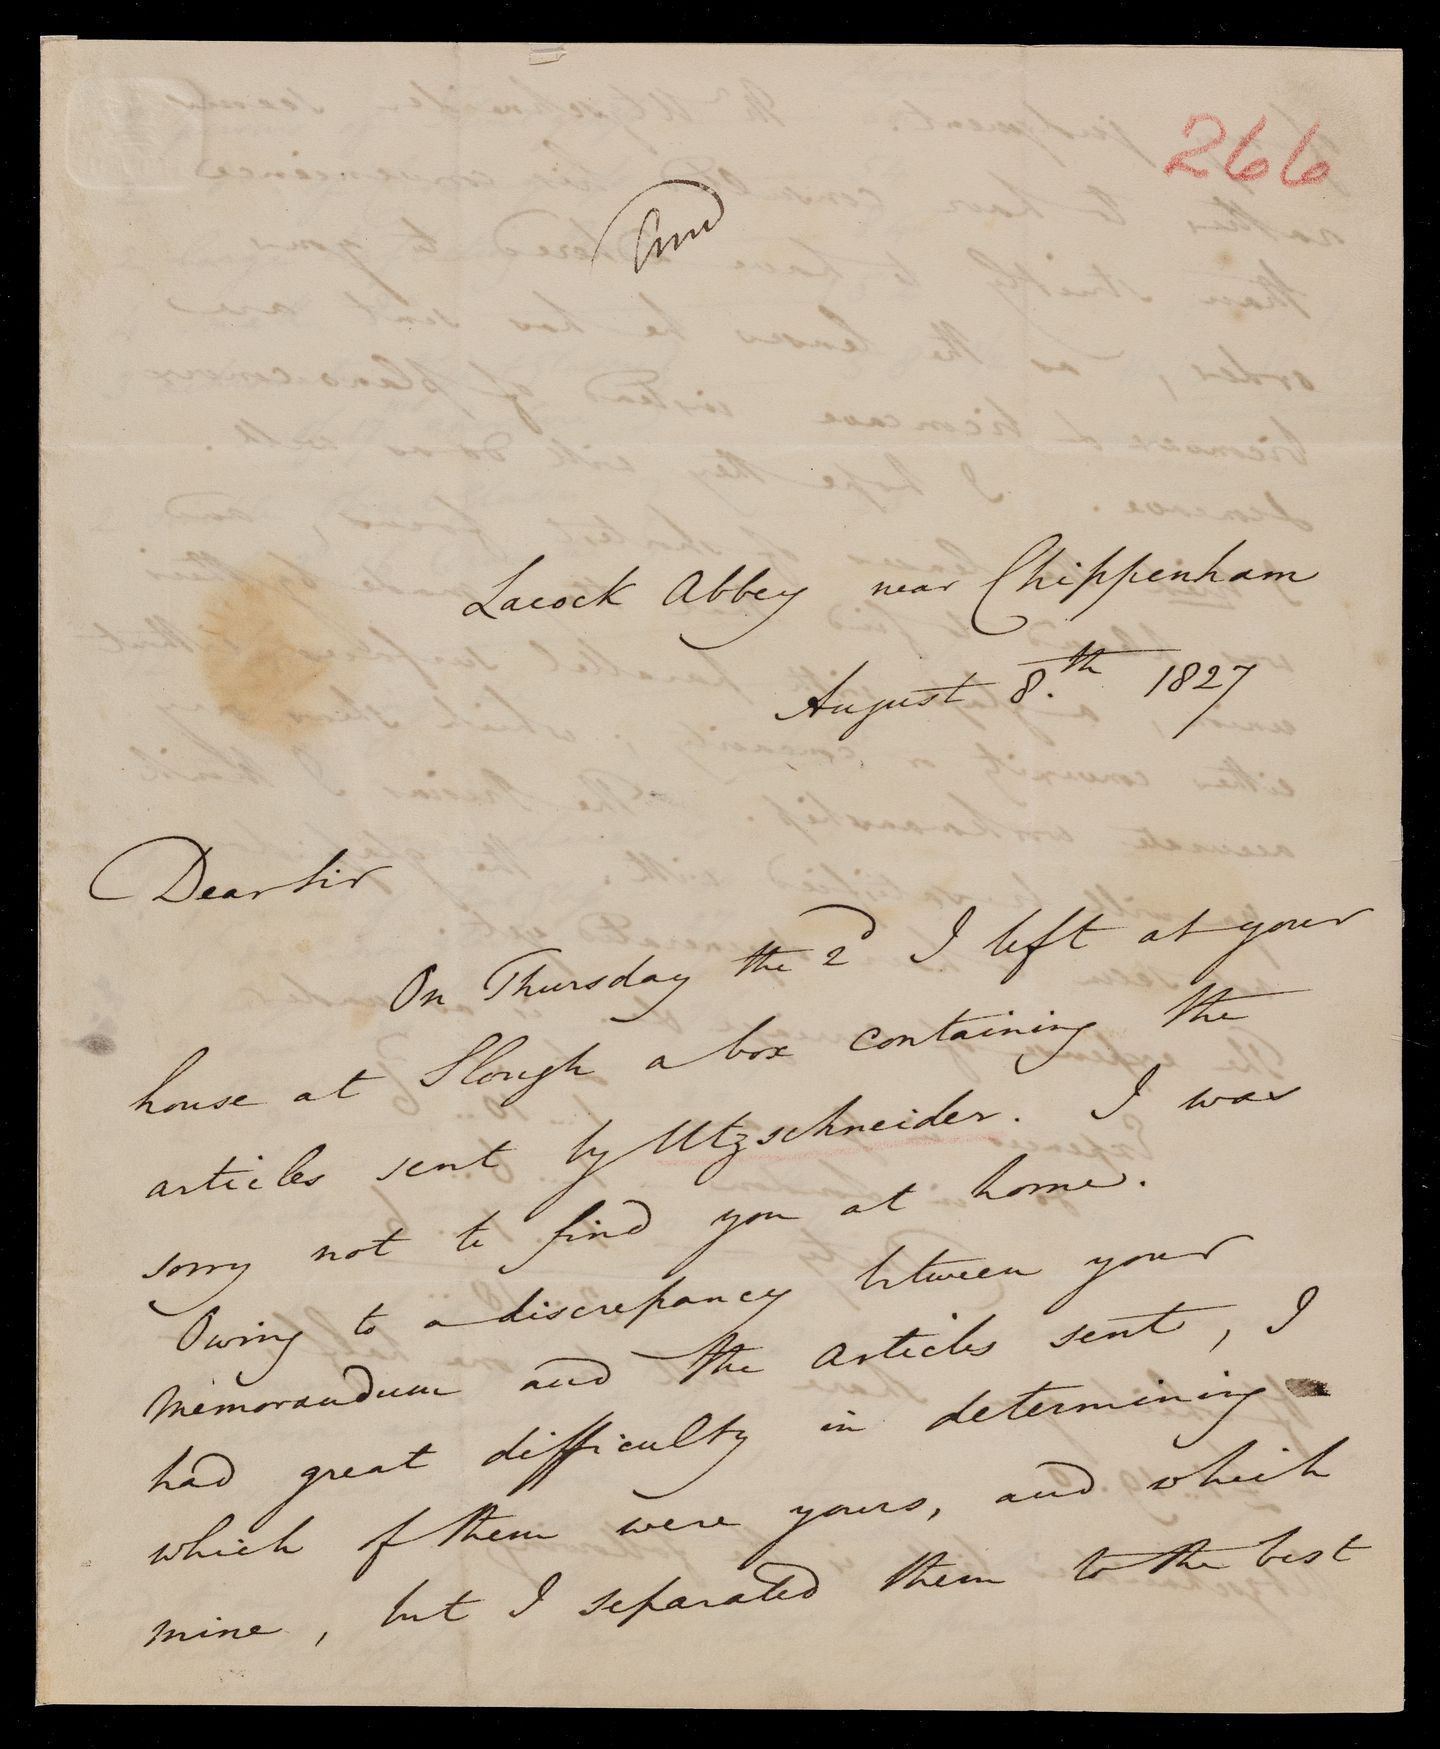 266
Lacock Abbey near Chippenham
August 8.th 1827
Dear Sir
On Thursday the 2d I left at your
house at Slough a box containing the
articles sent by Utzschneider. I was
sorry not to find you at home.
Owing to a discrepancy between your
memorandum and the articles sent, I
had great difficulty in determining
which of them were yours, and which
mine, but I separated them to the best